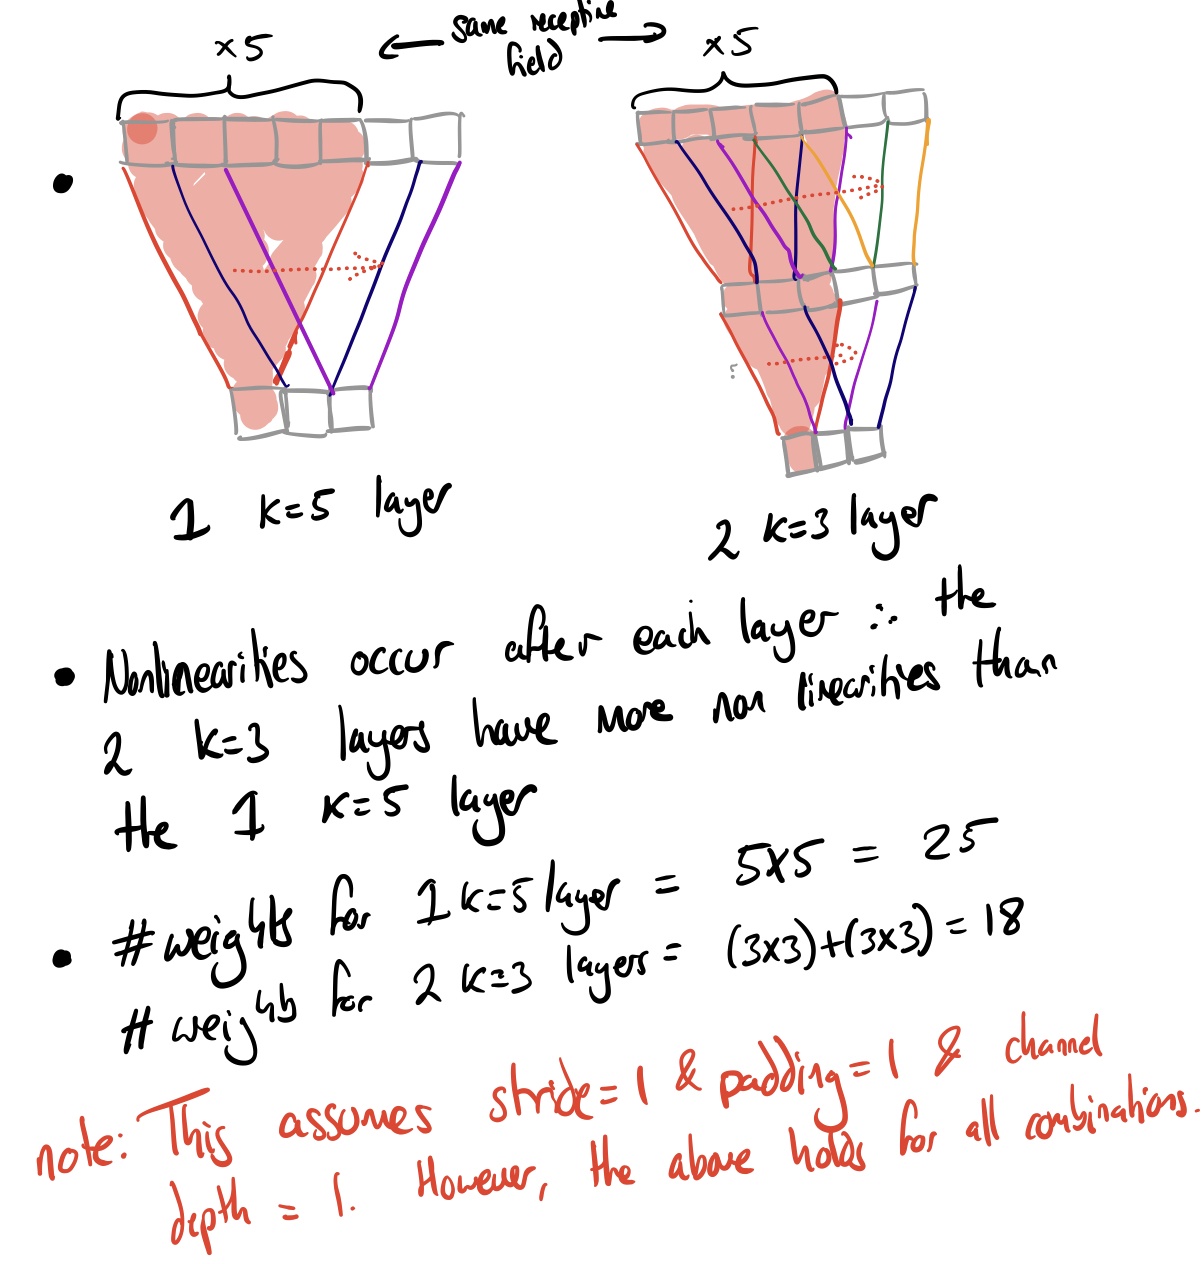 same receptive
field
x5
x5
1 k=5 layer
2 k=3 layer
Nonlinearities occur after each layer ∴ the
2 k=3 layers have more non linearities than
the 1 k=5 layer
#weights for 1 k=5 layer = 5x5 = 25
# weights for 2 k=3 layers = (3x3)+(3x3) = 18
note: This assumes stride=1 & padding=1 & channel
depth = 1. However, the above holds for all combinations.